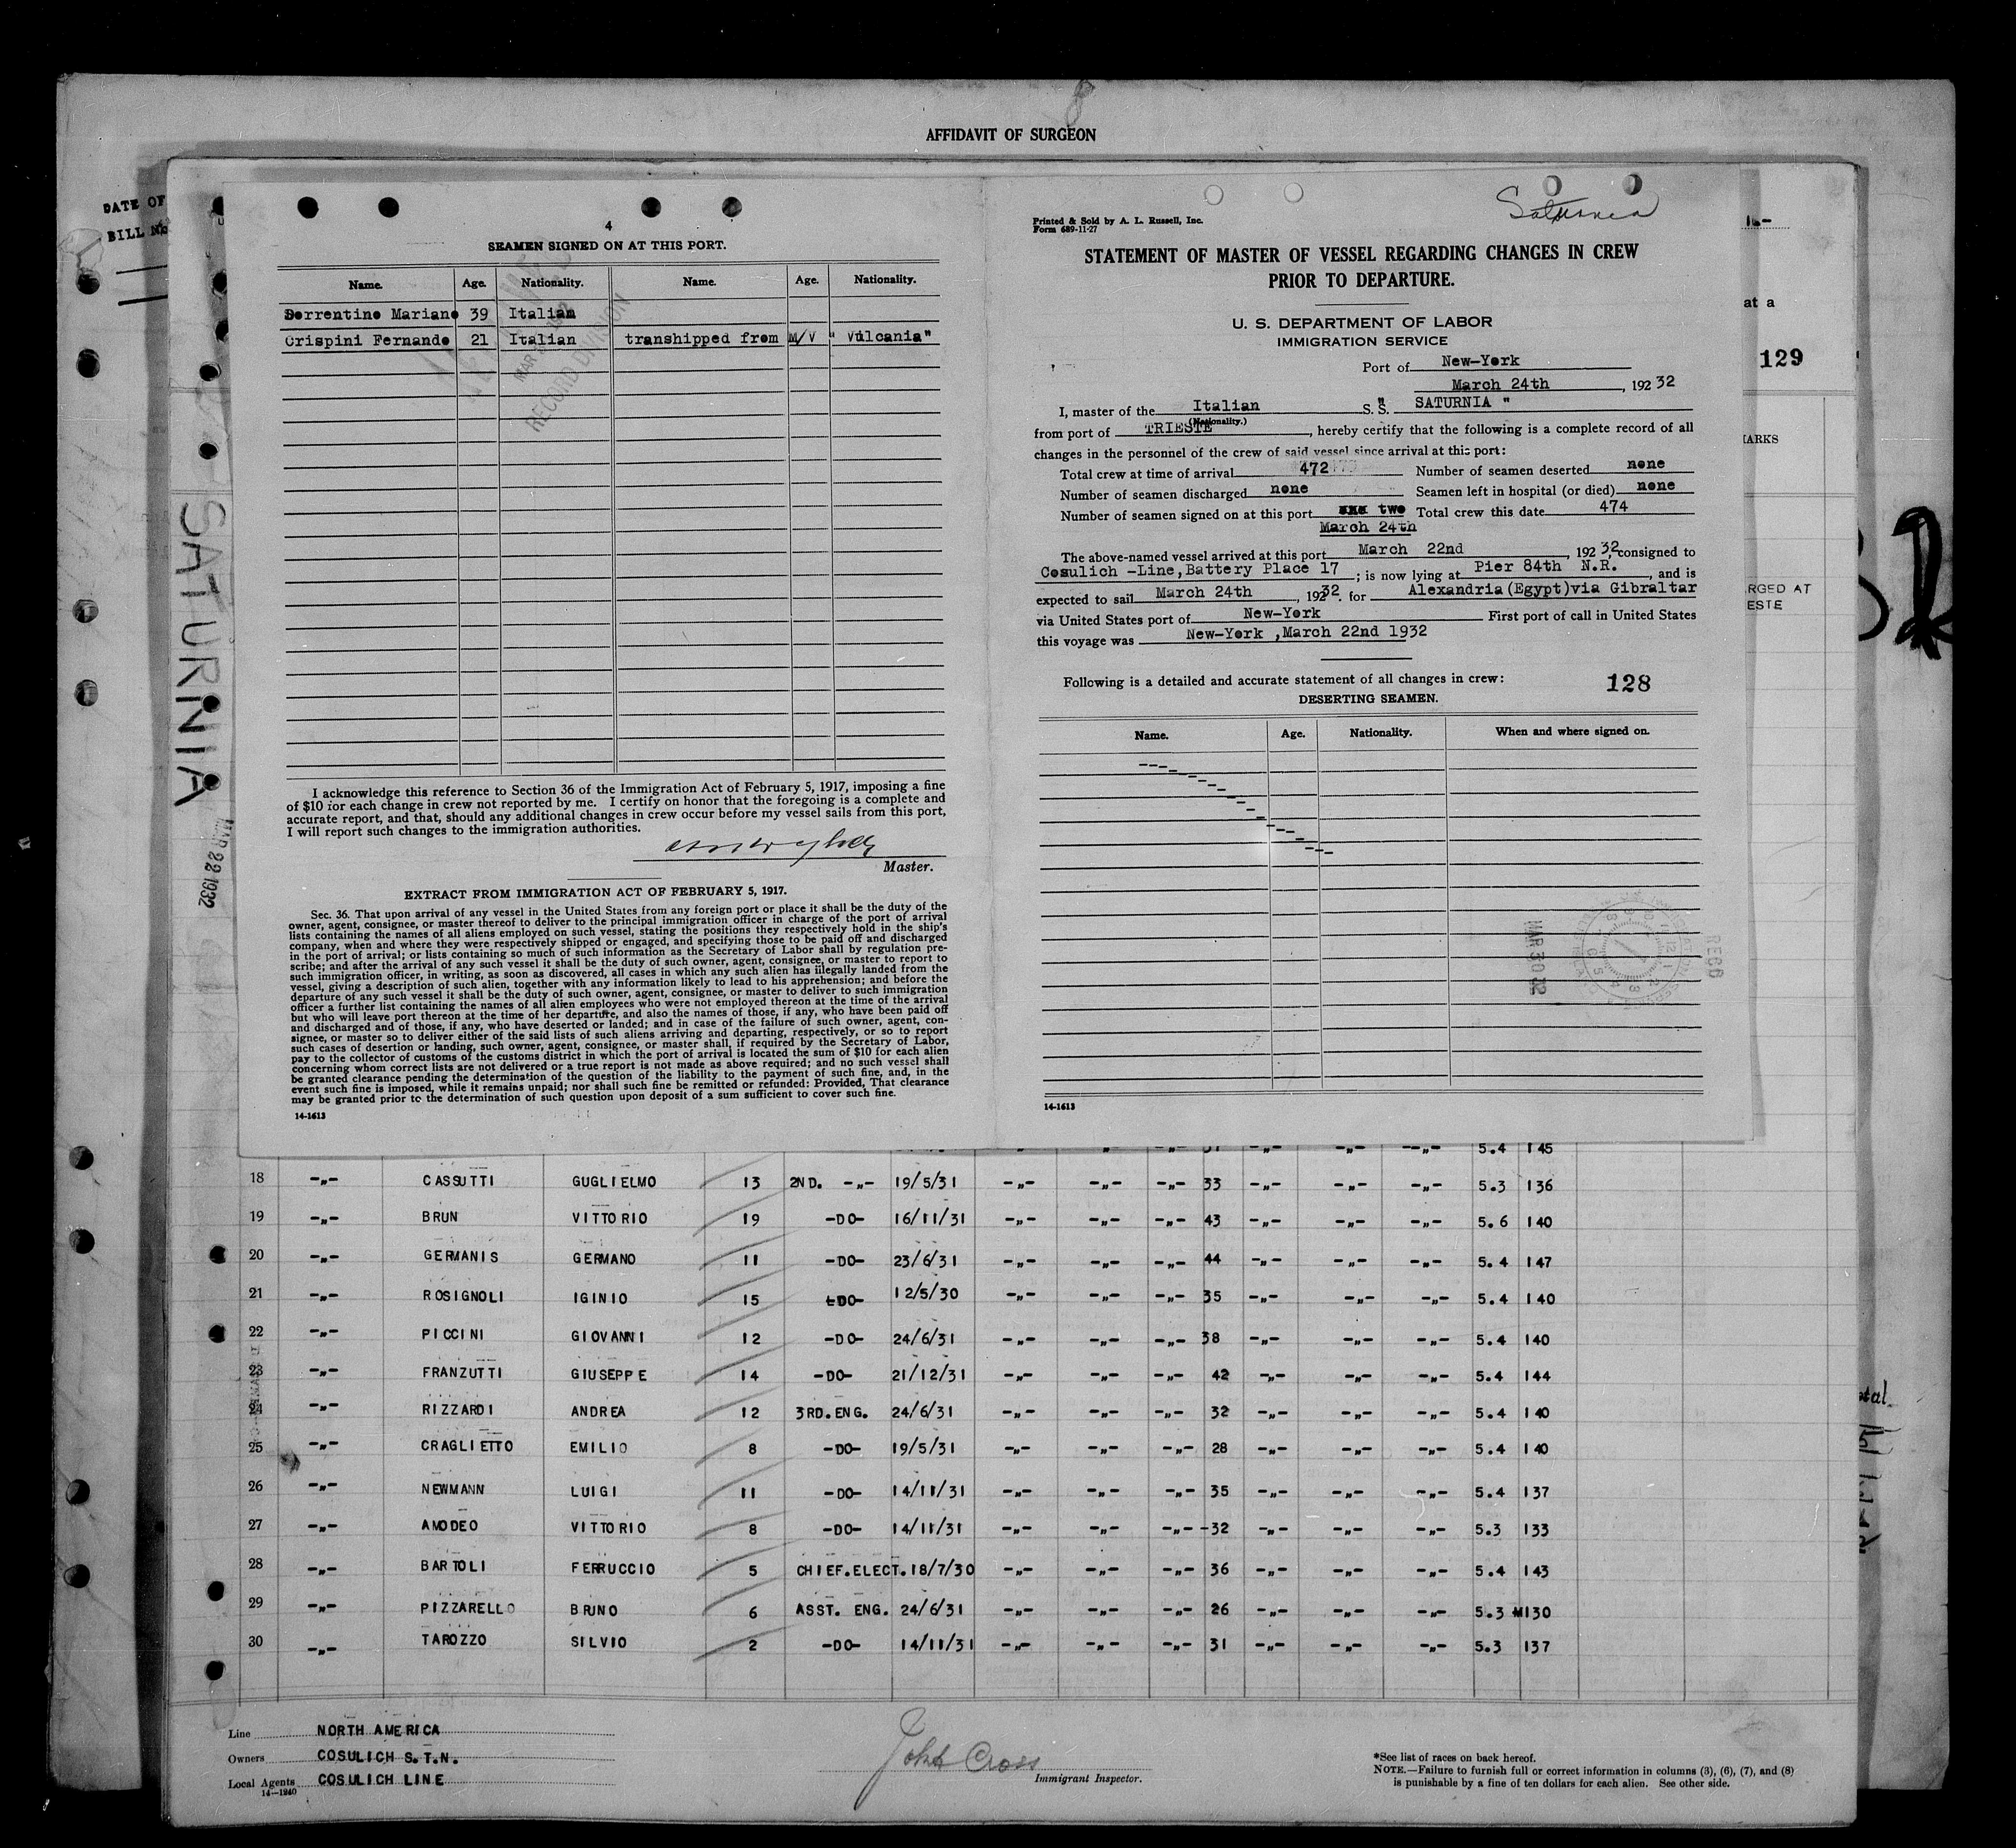 8
AFFIDAVIT OF SURGEON
DATE OF
BILL No
4
SEAMEN SIGNED ON AT THIS PORT.
Name. Age. Nationality. Name. Age. Nationality.
Sorrentino Mariano 39 Italian
Crispini Fernando 21 Italian transhipped from M/V " Vulcania"
RECORD DIVISION
I acknowledge this reference to Section 36 of the Immigration Act of February 5, 1917, imposing a fine
of $10 for each change in crew not reported by me. I certify on honor that the foregoing is a complete and
accurate report, and that, should any additional changes in crew occur before my vessel sails from this port,
I will report such changes to the immigration authorities.
Master.
EXTRACT FROM IMMIGRATION ACT OF FEBRUARY 5, 1917.
Sec. 36. That upon arrival of any vessel in the United States from any foreign port or place it shall be the duty of the
owner, agent, consignee, or master thereof to deliver to the principal immigration officer in charge of the port of arrival
lists containing the names of all aliens employed on such vessel, stating the positions they respectively hold in the ship's
company, when and where they were respectively shipped or engaged, and specifying those to be paid off and discharged
in the port of arrival; or lists containing so much of such information as the Secretary of Labor shall by regulation pre-
scribe; and after the arrival of any such vessel it shall be the duty of such owner, agent, consignee, or master to report to
such immigration officer, in writing, as soon as discovered, all cases in which any such alien has illegally landed from the
vessel, giving a description of such alien, together with any information likely to lead to his apprehension; and before the
departure of any such vessel it shall be the duty of such owner, agent, consignee, or master to deliver to such immigration
officer a further list containing the names of all alien employees who were not employed thereon at the time of the arrival
but who will leave port thereon at the time of her departure, and also the names of those, if any, who have been paid off
and discharged and of those, if any, who have deserted or landed; and in case of the failure of such owner, agent, con-
signee, or master so to deliver either of the said lists of such aliens arriving and departing, respectively, or so to report
such cases of desertion or landing, such owner, agent, consignee, or master shall, if required by the Secretary of Labor,
pay to the collector of customs of the customs district in which the port of arrival is located the sum of $10 for each alien
concerning whom correct lists are not delivered or a true report is not made as above required; and no such vessel shall
be granted clearance pending the determination of the question of the liability to the payment of such fine, and, in the
event such fine is imposed, while it remains unpaid; nor shall such fine be remitted or refunded: Provided, That clearance
may be granted prior to the determination of such question upon deposit of a sum sufficient to cover such fine.
14-1613
Saturnia
Printed & Sold by A. L. Russell, Inc.
Form 689-11-27
STATEMENT OF MASTER OF VESSEL REGARDING CHANGES IN CREW
PRIOR TO DEPARTURE.
U. S. DEPARTMENT OF LABOR
IMMIGRATION SERVICE
Port of New-York
March 24th, 192 32
I, master of the Italian S. S. " SATURNIA "
(Nationality.)
from port of TRIESTE, hereby certify that the following is a complete record of all
changes in the personnel of the crew of said vessel since arrival at this port:
Total crew at time of arrival 472 Number of seamen deserted none
Number of seamen discharged none Seamen left in hospital (or died) none
Number of seamen signed on at this port two Total crew this date 474
March 24th
The above-named vessel arrived at this port March 22nd, 192 32, consigned to
Cosulich -Line, Battery Place 17; is now lying at Pier 84th N.R., and is
expected to sail March 24th, 192 32. for Alexandria (Egypt) via Gibraltar
via United States port of New-York First port of call in United States
this voyage was New-York, March 22nd 1932
Following is a detailed and accurate statement of all changes in crew: 128
DESERTING SEAMEN.
Name. Age. Nationality. When and where signed on.
MAR 30 32
REC'D
14-1613
at a
129
MARKS
RGED AT
ESTE
SATURNIA
MAR 22 1932
5.4 145
18 -„- CASSUTTI GUGLIELMO 13 2ND. -„- 19/5/31 -„- -„- -„- 33 -„- -„- -„- 5.3 136
19 -„- BRUN VITTORIO 19 -DO- 16/11/31 -„- -„- -„- 43 -„- -„- -„- 5.6 140
20 -„- GERMANIS GERMANO 11 -DO- 23/6/31 -„- -„- -„- 44 -„- -„- -„- 5.4 147
21 -„- ROSIGNOLI IGINIO 15 -DO- 12/5/30 -„- -„- -„- 35 -„- -„- -„- 5.4 140
22 -„- PICCINI GIOVANNI 12 -DO- 24/6/31 -„- -„- -„- 38 -„- -„- -„- 5.4 140
23 -„- FRANZUTTI GIUSEPPE 14 -DO- 21/12/31 -„- -„- -„- 42 -„- -„- -„- 5.4 144
24 -„- RIZZARDI ANDREA 12 3RD.ENG. 24/6/31 -„- -„- -„- 32 -„- -„- -„- 5.4 140
25 -„- CRAGLIETTO EMILIO 8 -DO- 19/5/31 -„- -„- -„- 28 -„- -„- -„- 5.4 140
26 -„- NEWMANN LUIGI 11 -DO- 14/11/31 -„- -„- -„- 35 -„- -„- -„- 5.4 137
27 -„- AMODEO VITTORIO 8 -DO- 14/11/31 -„- -„- -„- 32 -„- -„- -„- 5.3 133
28 -„- BARTOLI FERRUCCIO 5 CHIEF.ELECT. 18/7/30 -„- -„- -„- 36 -„- -„- -„- 5.4 143
29 -„- PIZZARELLO BRUNO 6 ASST. ENG. 24/6/31 -„- -„- -„- 26 -„- -„- -„- 5.3 130
30 -„- TAROZZO SILVIO 2 -DO- 14/11/31 -„- -„- -„- 31 -„- -„- -„- 5.3 137
Line NORTH AMERICA
Owners COSULICH S.T.N.
Local Agents COSULICH LINE
14-1240
John Cross
Immigrant Inspector.
*See list of races on back hereof.
NOTE.—Failure to furnish full or correct information in columns (3), (6), (7), and (8)
is punishable by a fine of ten dollars for each alien. See other side.